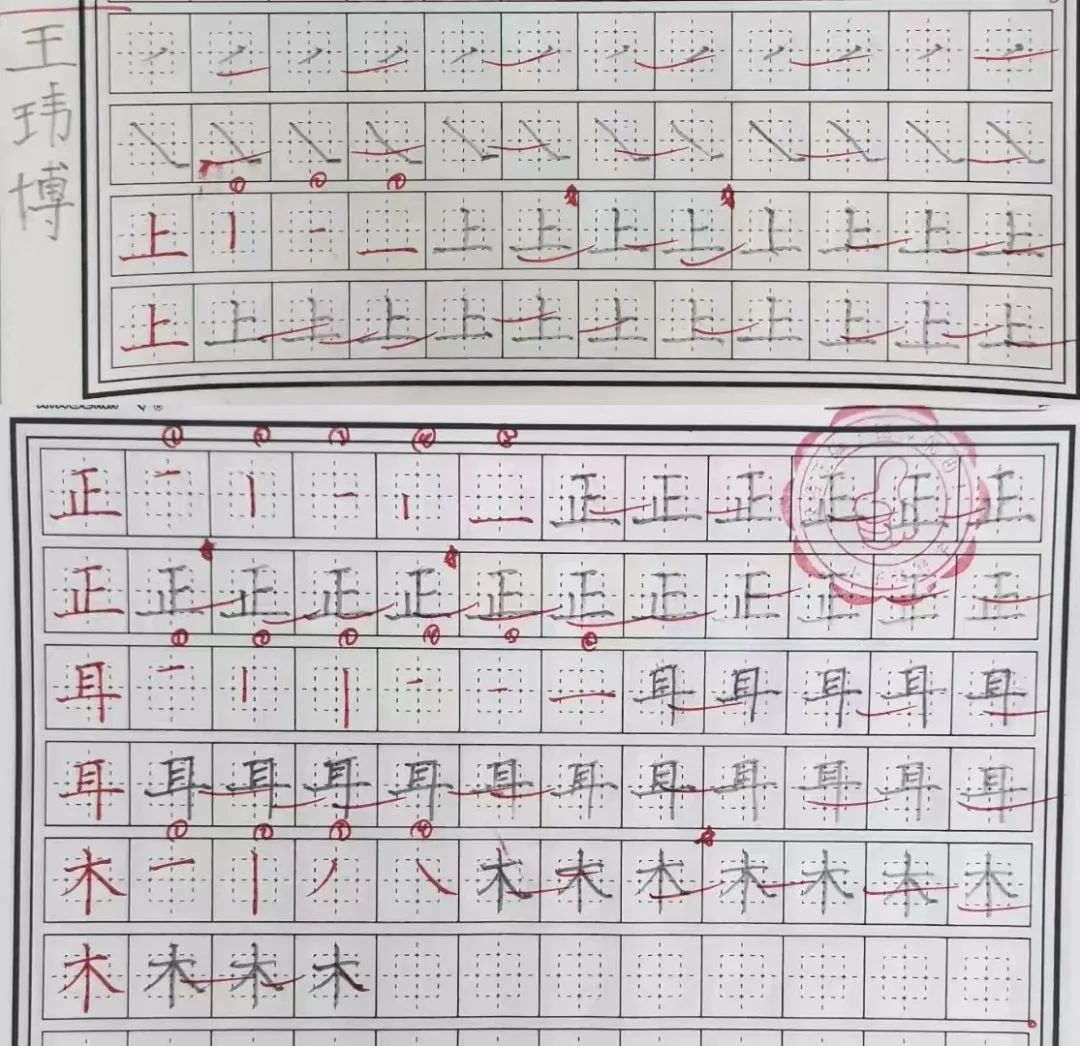 王玮博
① ② ③
上 上 上 上 上 上 上 上 上
上 上 上 上 上 上 上 上 上 上 上 上
① ② ③ ④ ⑤
正 正 正 正 正 正 正
正 正 正 正 正 正 正 正 正 正 正 正
① ② ③ ④ ⑤ ⑥
耳 耳 耳 耳 耳 耳
耳 耳 耳 耳 耳 耳 耳 耳 耳 耳 耳 耳
① ② ③ ④
木 木 木 木 木 木 木 木
木 木 木 木